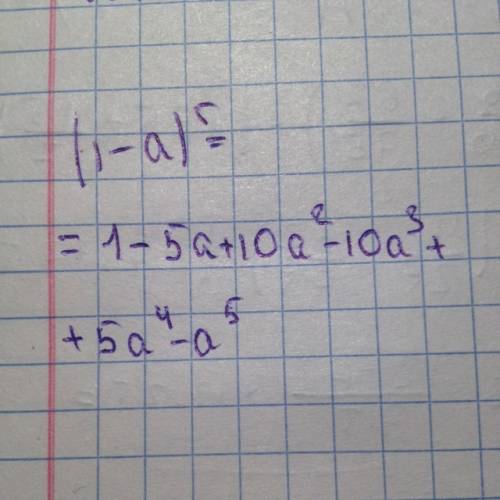 (1-a)⁵=
= 1-5a+10a²-10a³+
+5a⁴-a⁵